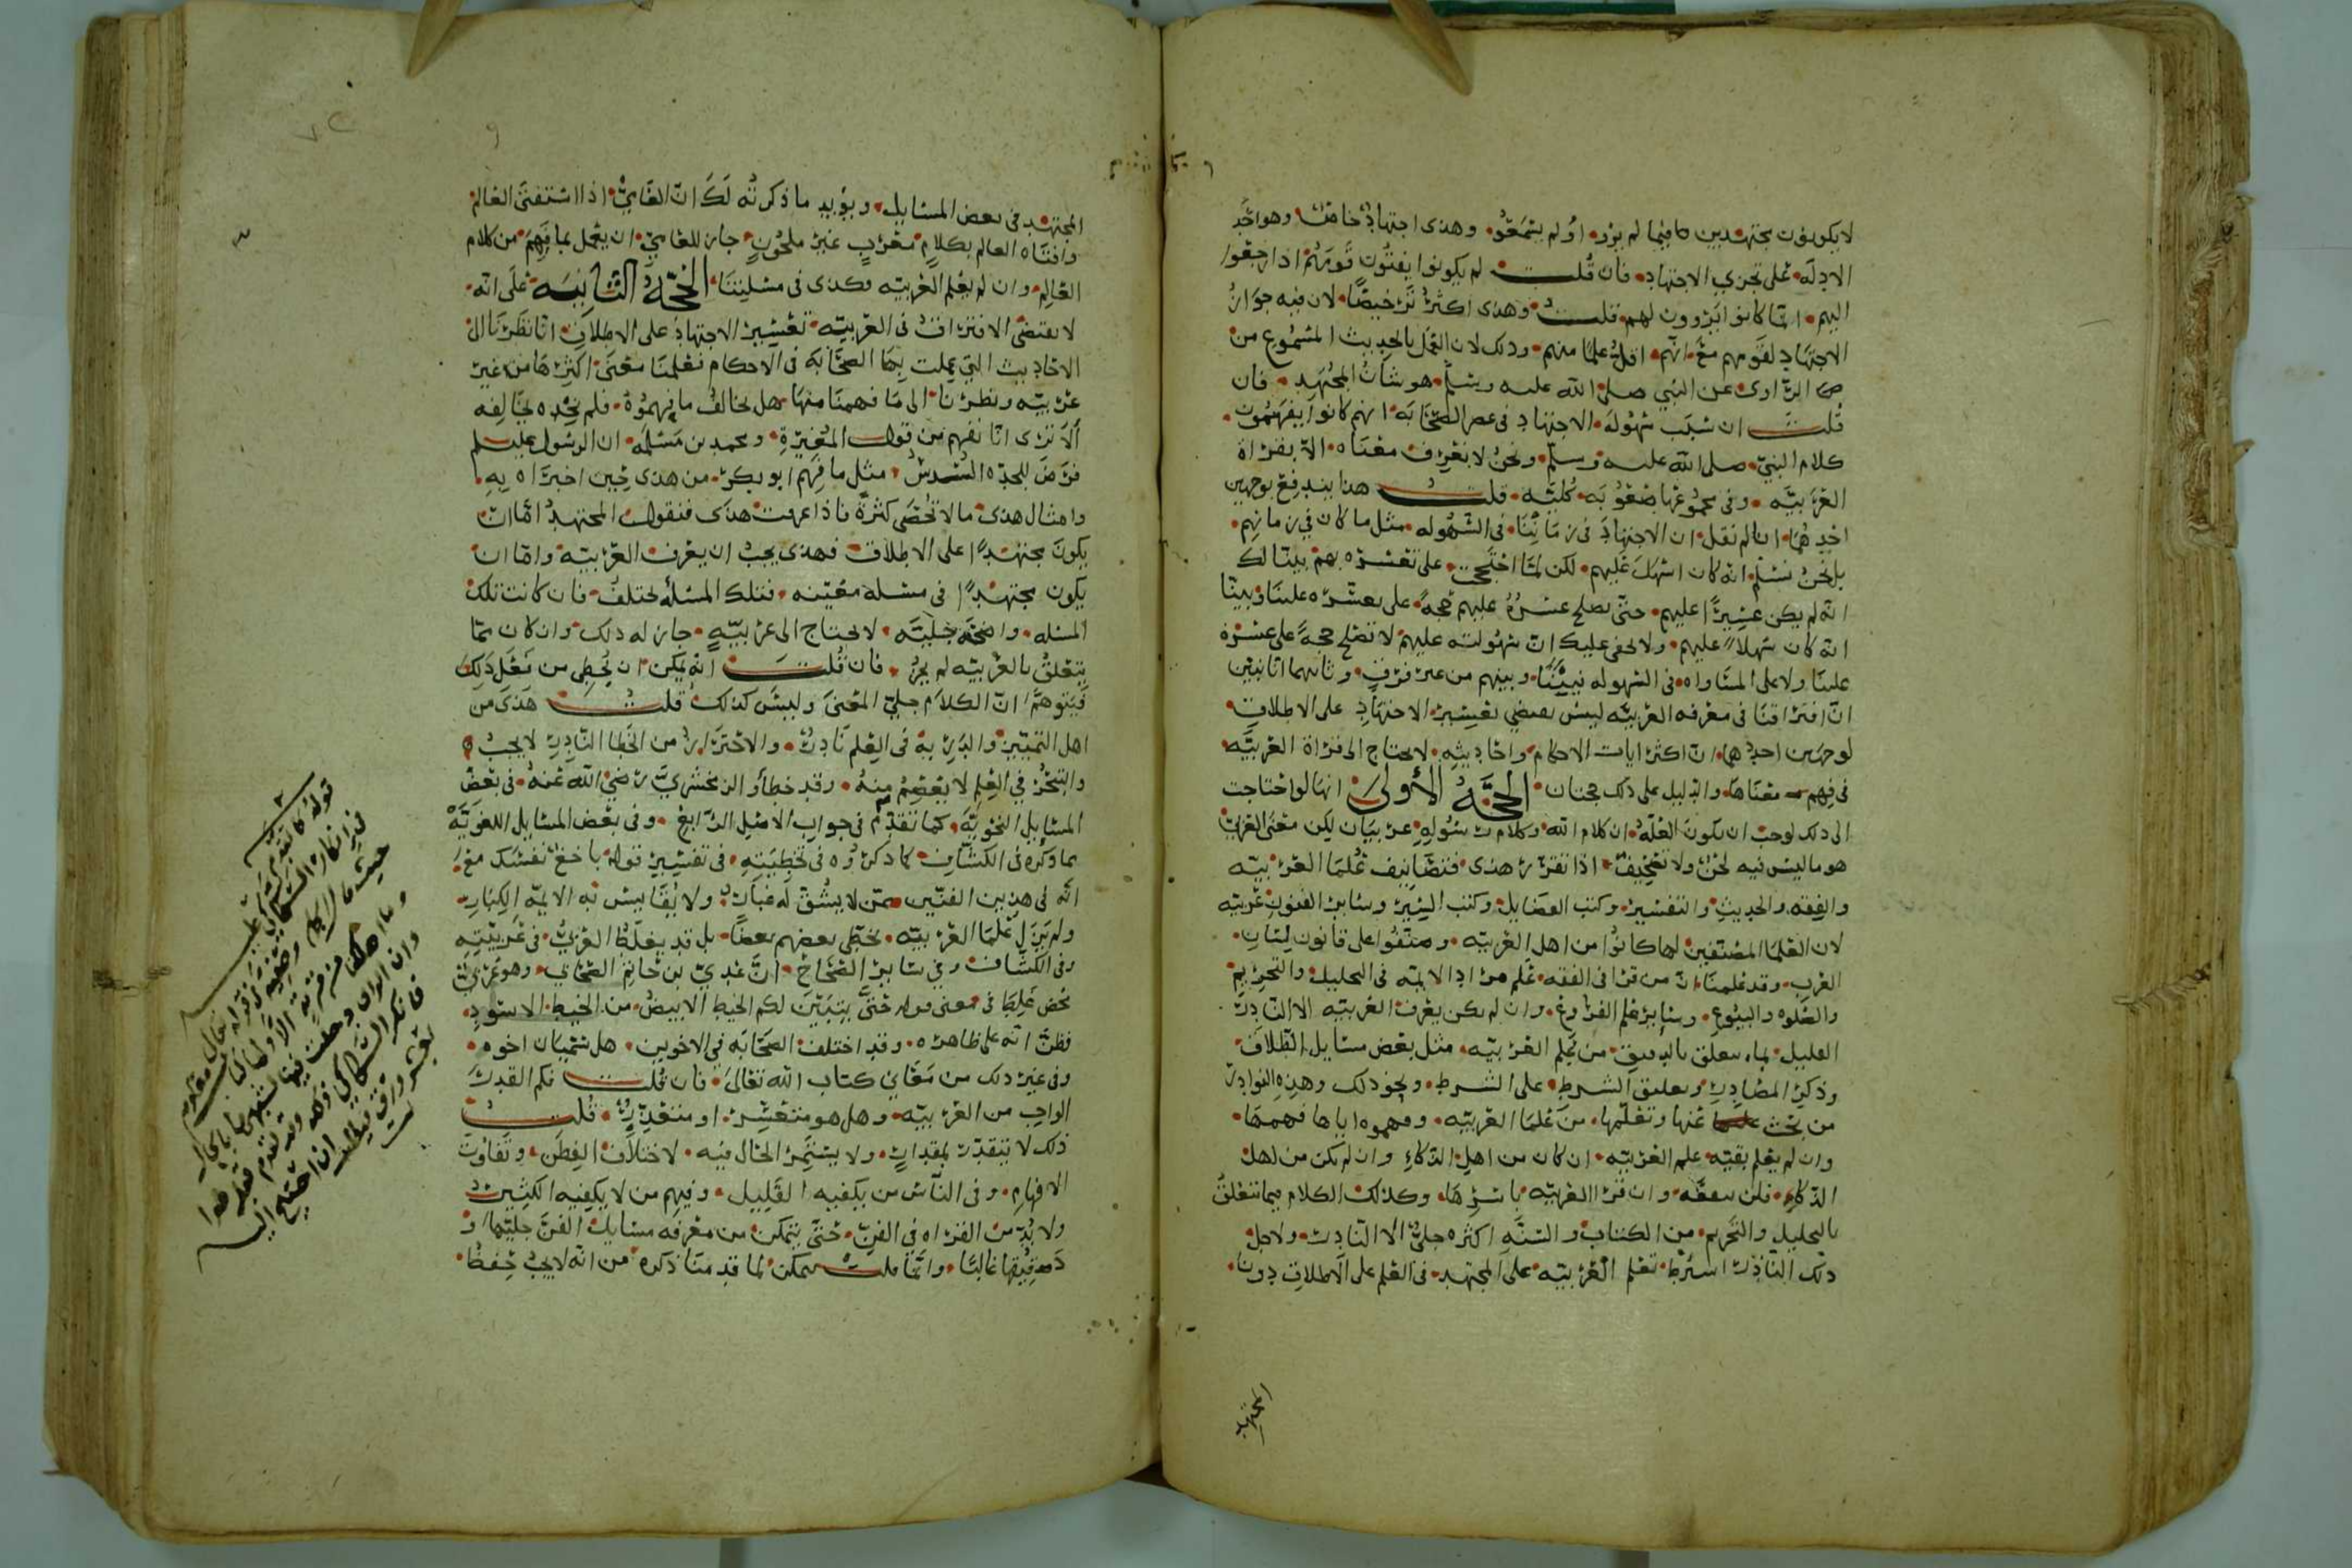 لا يكونون مجتهدين فيما لم يرد اولم يسمعوه وهذى اجتهاد خاص وهو احد
الادلة على تجزي الاجتهاد فان قلت لم يكونوا يفتون قومهم اذا رجعوا
اليهم انما كانوا يروون لهم قلت وهذى اكثر ترخيصا لان فيه جواز
الاجتهاد لقومهم مع انهم اقل علما منهم وذلك لان العمل بالحديث المسموع من
الراوى عن النبي صلى الله عليه وسلم هو شان المجتهد فان
قلت ان سبب سهولة الاجتهاد فى عصر الصحابه انهم كانوا يفهمون
كلام النبي صلى الله عليه وسلم ونحن لا نعرف معناه الا بقراة
العربيه وفى مجموعها صعوبه كليه قلت هذا يندفع بوجهين
احدهما انا لم نقل ان الاجتهاد فى زماننا فى السهوله مثل ما كان في زمانهم
بل نحن نسلم انه كان اسهل عليهم لكن لما احتج على تعسره بهم بينا لك
انه لم يكن عسيرا عليهم حتى يصلح عسره عليهم حجة على تعسره علينا وبينا
انه كان سهلا عليهم ولا يخفى عليك ان سهولته عليهم لا تصلح حجة على عسره
علينا ولا على المساواه فى السهوله بيننا وبينهم من غير فرق وثانيهما انا نبين
ان افتراقنا فى معرفه العربيه ليس يقتضي تعسير الاجتهاد على الاطلاق
لوجهين احدهما ان اكثر ايات الاحكام واحاديثه لا يحتاج الى قراة العربيه
فى فهم معناها والدليل على ذلك حجتان الحجة الأولى انها لو احتاجت
الى ذلك لوجب ان تكون العله ان كلام الله وكلام رسوله عربيان لكن معنى العربي
هو ما ليس فيه لحن ولا تصحيف اذا تقرر هذى فتصانيف علما العربيه
والفقه والحديث والتفسير وكتب الفضايل وكتب السير وساير الفنون عربيه
لان العلما المصنفين لها كانوا من اهل العربيه وصنفوا على قانون لسان
العرب وقد علمنا ان من قرا فى الفقه علم مراد الايمه فى التحليل والتحريم
والصلوه والبيوع وساير علم الفروع وان لم يكن يعرف العربيه الا النادر
القليل مما يتعلق بالدقيق من علم العربيه مثل بعض مسايل الطلاق
وذكر المصادر وتعليق الشرط على الشرط ونحو ذلك وهذه النوادر
من بحث عنها وتعلمها من علما العربيه وفهموه اياها فهمها
وان لم يعلم بقيه علم العربيه ان كان من اهل الذكاء وان لم يكن من اهل
الذكاء فلن ينفعه وان قرا العربيه باسرها وكذلك الكلام فيما يتعلق
بالتحليل والتحريم من الكتاب والسنه اكثره جلي الا النادر ولاجل
ذلك النادر اشترط تعلم العربيه على المجتهد فى العلم على الاطلاق دون
المجتهد
المجتهد فى بعض المسايل ويؤيد ما ذكرته لك ان العامي اذا استفتى العالم
وافتاه العالم بكلام معرب غير ملحون جاز للعامي ان يعمل بما فهم من كلام
العالم وان لم يعلم العربيه فكذى فى مسلتنا الحجة الثانيه على انه
لا يقتضى الافتراق فى العربيه تعسير الاجتهاد على الاطلاق انا نظرنا الى
الاحاديث التي عملت بها الصحابه فى الاحكام فعلمنا معنى اكثرها من غير
عربيه ونظرنا الى ما فهمنا منها هل يخالف ما فهموه فلم نجده يخالفه
الا ترى انا نفهم من قول المغيرة ومحمد بن مسلمه ان الرسول عليه السلم
فرض للجده السدس مثل ما فهم ابو بكر من هذى حين اخبراه به
وامثال هذى ما لا تحصى كثرة فاذا عرفت هذى فنقول المجتهد اما ان
يكون مجتهدا على الاطلاق فهذى يجب ان يعرف العربيه واما ان
يكون مجتهدا فى مسئلة معينه فتلك المسئلة تختلف فان كانت تلك
المسئله واضحة جليه لا تحتاج الى عربيه جاز له ذلك وان كان مما
يتعلق بالعربيه لم يجز فان قلت انه يمكن ان يخطي من فعل ذلك
فيتوهم ان الكلام جلي المعنى وليس كذلك قلت هذى من
اهل التمييز والدربه فى العلم نادر والاحتراز من الخطا النادر لا يجب
والتبحر في العلم لا يعصم منه وقد خطأوا الزمخشري رضي الله عنه فى بعض
المسايل النحويه كما تقدم فى جواب الامثل الرابع وفى بعض المسايل اللغويه
مما ذكره فى الكشاف كما ذكروه فى تخطيته فى تفسير قوله باخع نفسك مع
انه فى هذين الفنين ممن لا يشق له غبار ولا يقايس به الايمه الكبار
ولم يزل علما العربيه يخطي بعضهم بعضا بل قد يغلط العربي فى عربيته
وفى الكشاف وفي ساير الصحاح ان عدي بن حاتم الصحابي وهو عربي
محض غلط فى معنى قوله حتى يتبين لكم الخيط الابيض من الخيط الاسود
فظن انه على ظاهره وقد اختلف الصحابه في الاخوين هل يسميان اخوه
وفى غير ذلك من معاني كتاب الله تعالى فان قلت فكم القدر
الواجب من العربيه وهل هو متعسر او متعذر قلت
ذلك لا يتقدر بمقدار ولا يستمر الحال فيه لاختلاف الفطن وتفاوت
الافهام وفى الناس من يكفيه القليل وفيهم من لا يكفيه الكثير
ولا بد من القراه في الفن حتى يتمكن من معرفه مسايل الفن جليها و
دقيقها غالبا وانما قلت يتمكن لما قدمنا ذكره من انه لا يجب حفظ